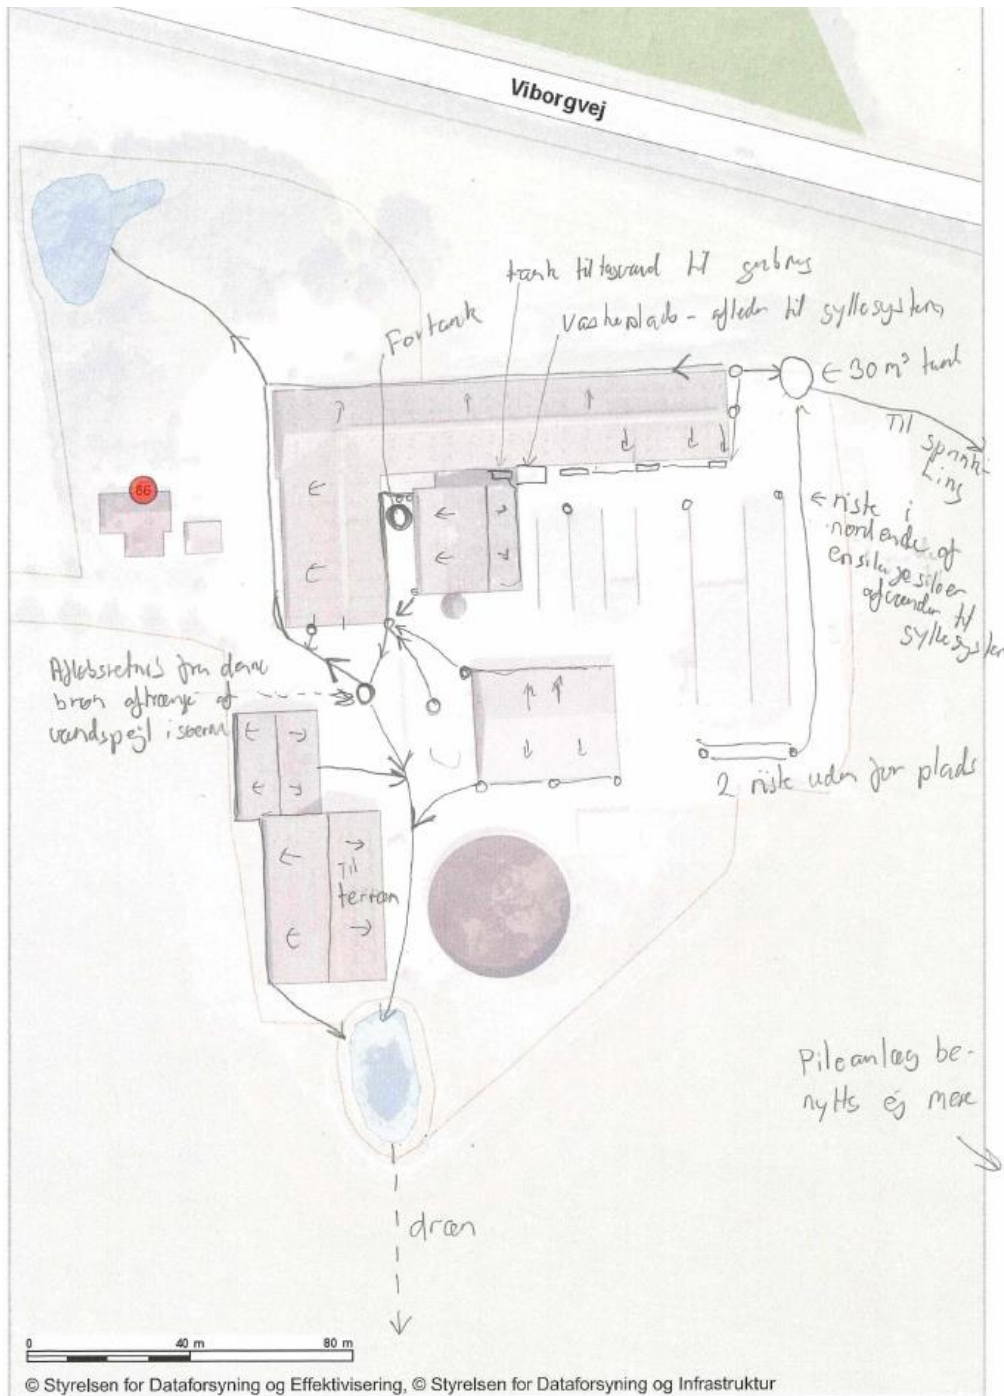 Viborgvej
tank til tagvand til genbrug
Vaskeplads - afleder til gyllesystem
Fortank
← 30 m³ tank
Til
sprink-
ling
86
← riste i
nordende af
ensilagesiloer
afvander til
gyllesystem
Afløbsretning fra denne
brøn afhænge af
vandspejl i søerne
2 riste uden for plads
Til
terræn
Pileanlæg be-
nyttes ej mere
dræn
0 40 m 80 m
© Styrelsen for Dataforsyning og Effektivisering, © Styrelsen for Dataforsyning og Infrastruktur